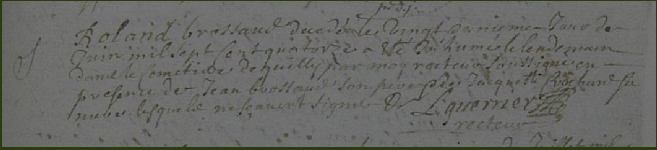 Roland brossaud decedé le vingt deuxieme Jour de
Juin mil sept cent quatorze a été Inhumé le lendemain
dans le cimetiere de neuilly par moy recteur soussigné en
presence de Jean brossaud son pere et de Jacquette Richard sa
mere lesquels ne scavent signer
recteur